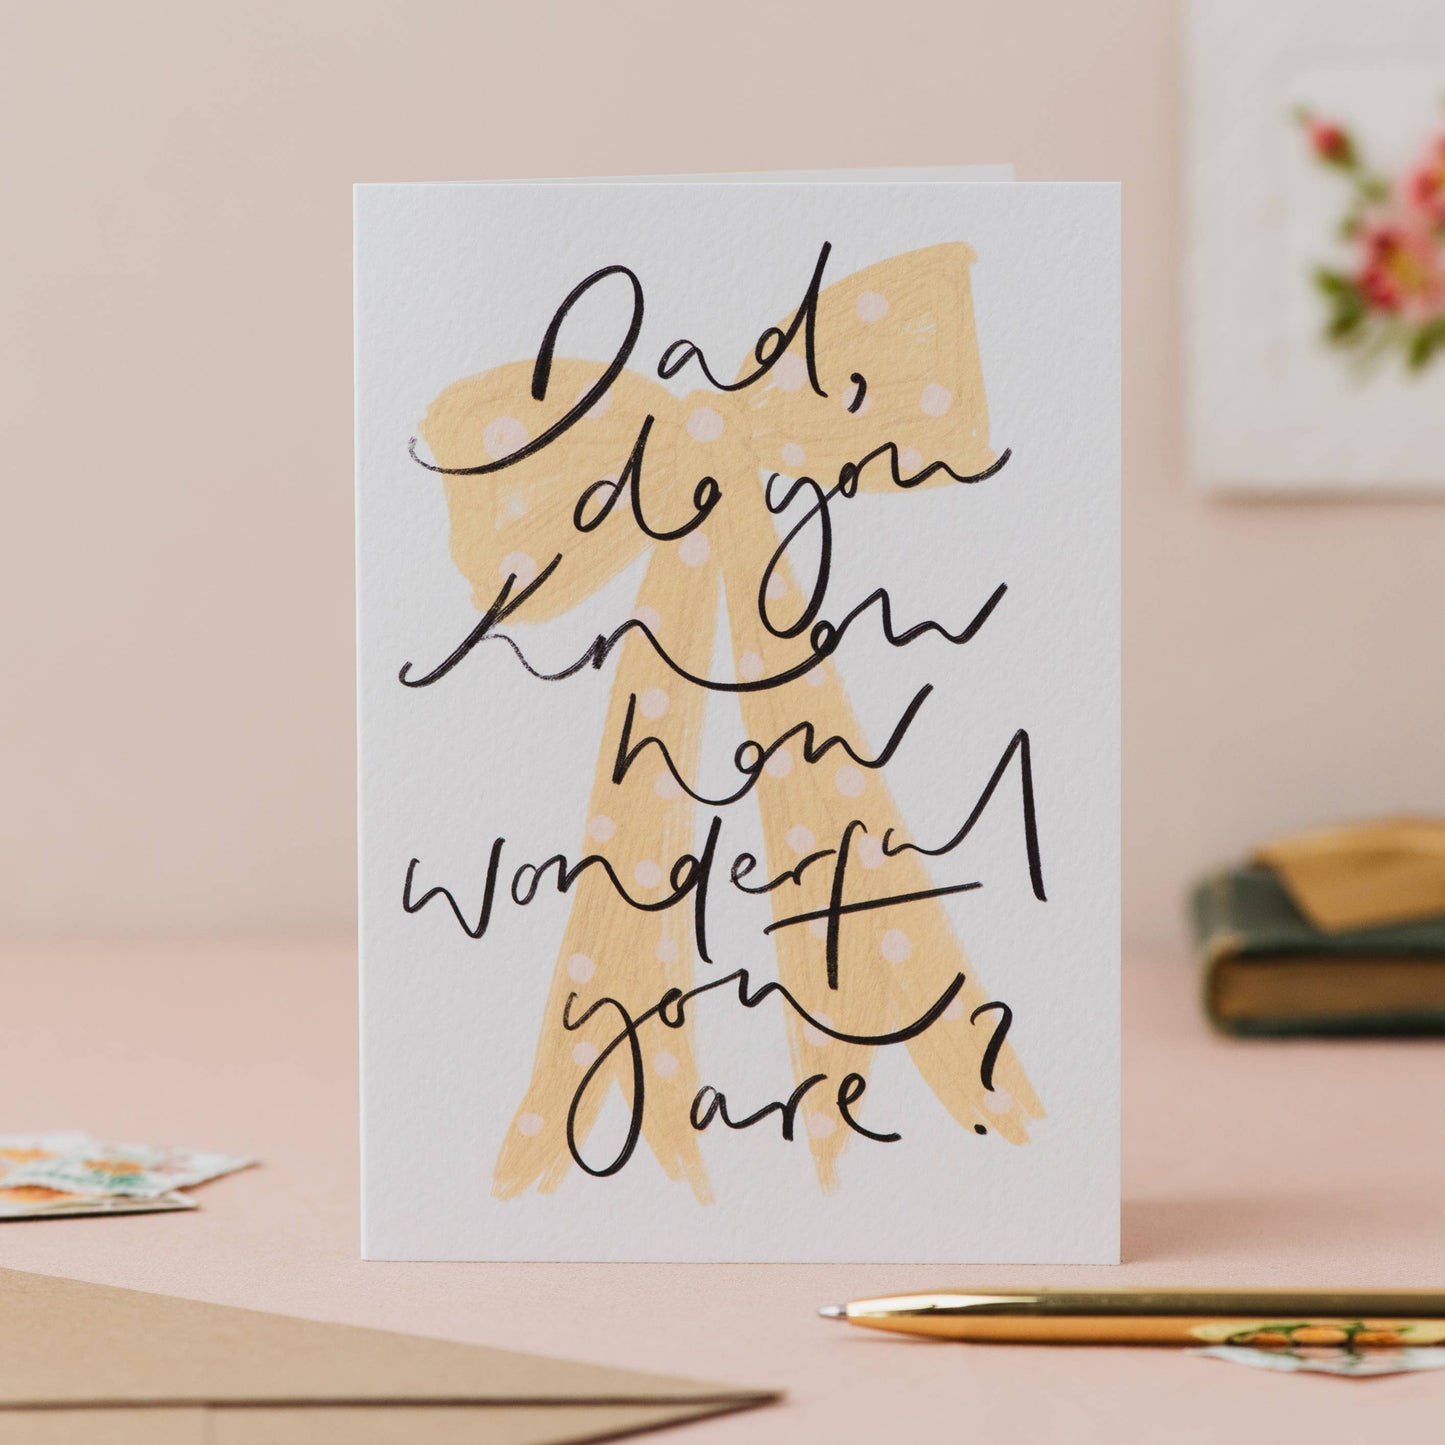 Dad,
do you
know
how
wonderful
you
are?